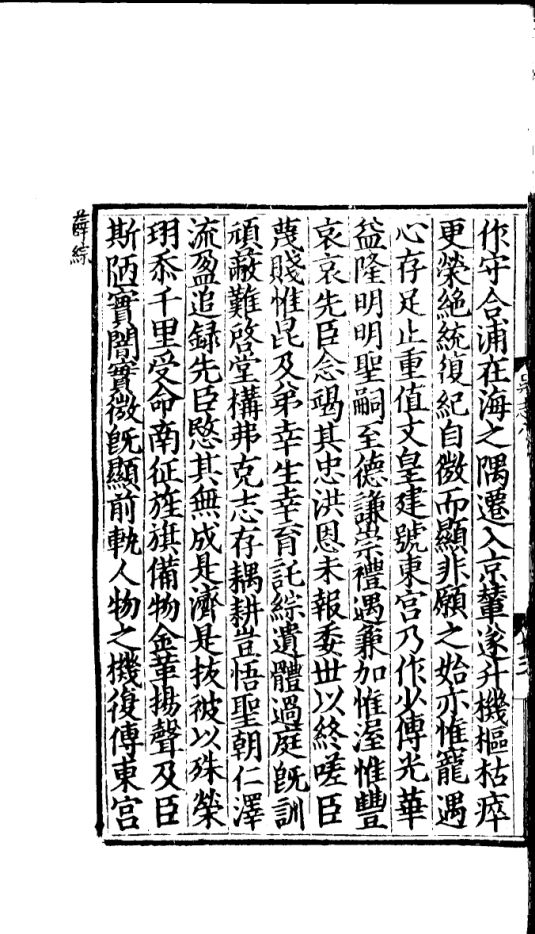 作守合浦在海之隅遷入京輦遂升機樞枯瘁
更榮絶統復紀自微而顯非願之始亦惟寵遇
心存足止重值文皇建號東宮乃作少傅光華
益隆明明聖嗣至德謙崇禮遇兼加惟渥惟豐
哀哀先臣念竭其忠洪恩未報委世以終嗟臣
蔑賤惟昆及弟幸生幸育託綜遺體過庭旣訓
頑蔽難啓堂構弗克志存耦耕豈悟聖朝仁澤
流盈追録先臣愍其無成是濟是拔被以殊榮
珝忝千里受命南征旌旗備物金革揚聲及臣
斯陋實闇實微旣顯前軌人物之機復傅東宮
薛綜